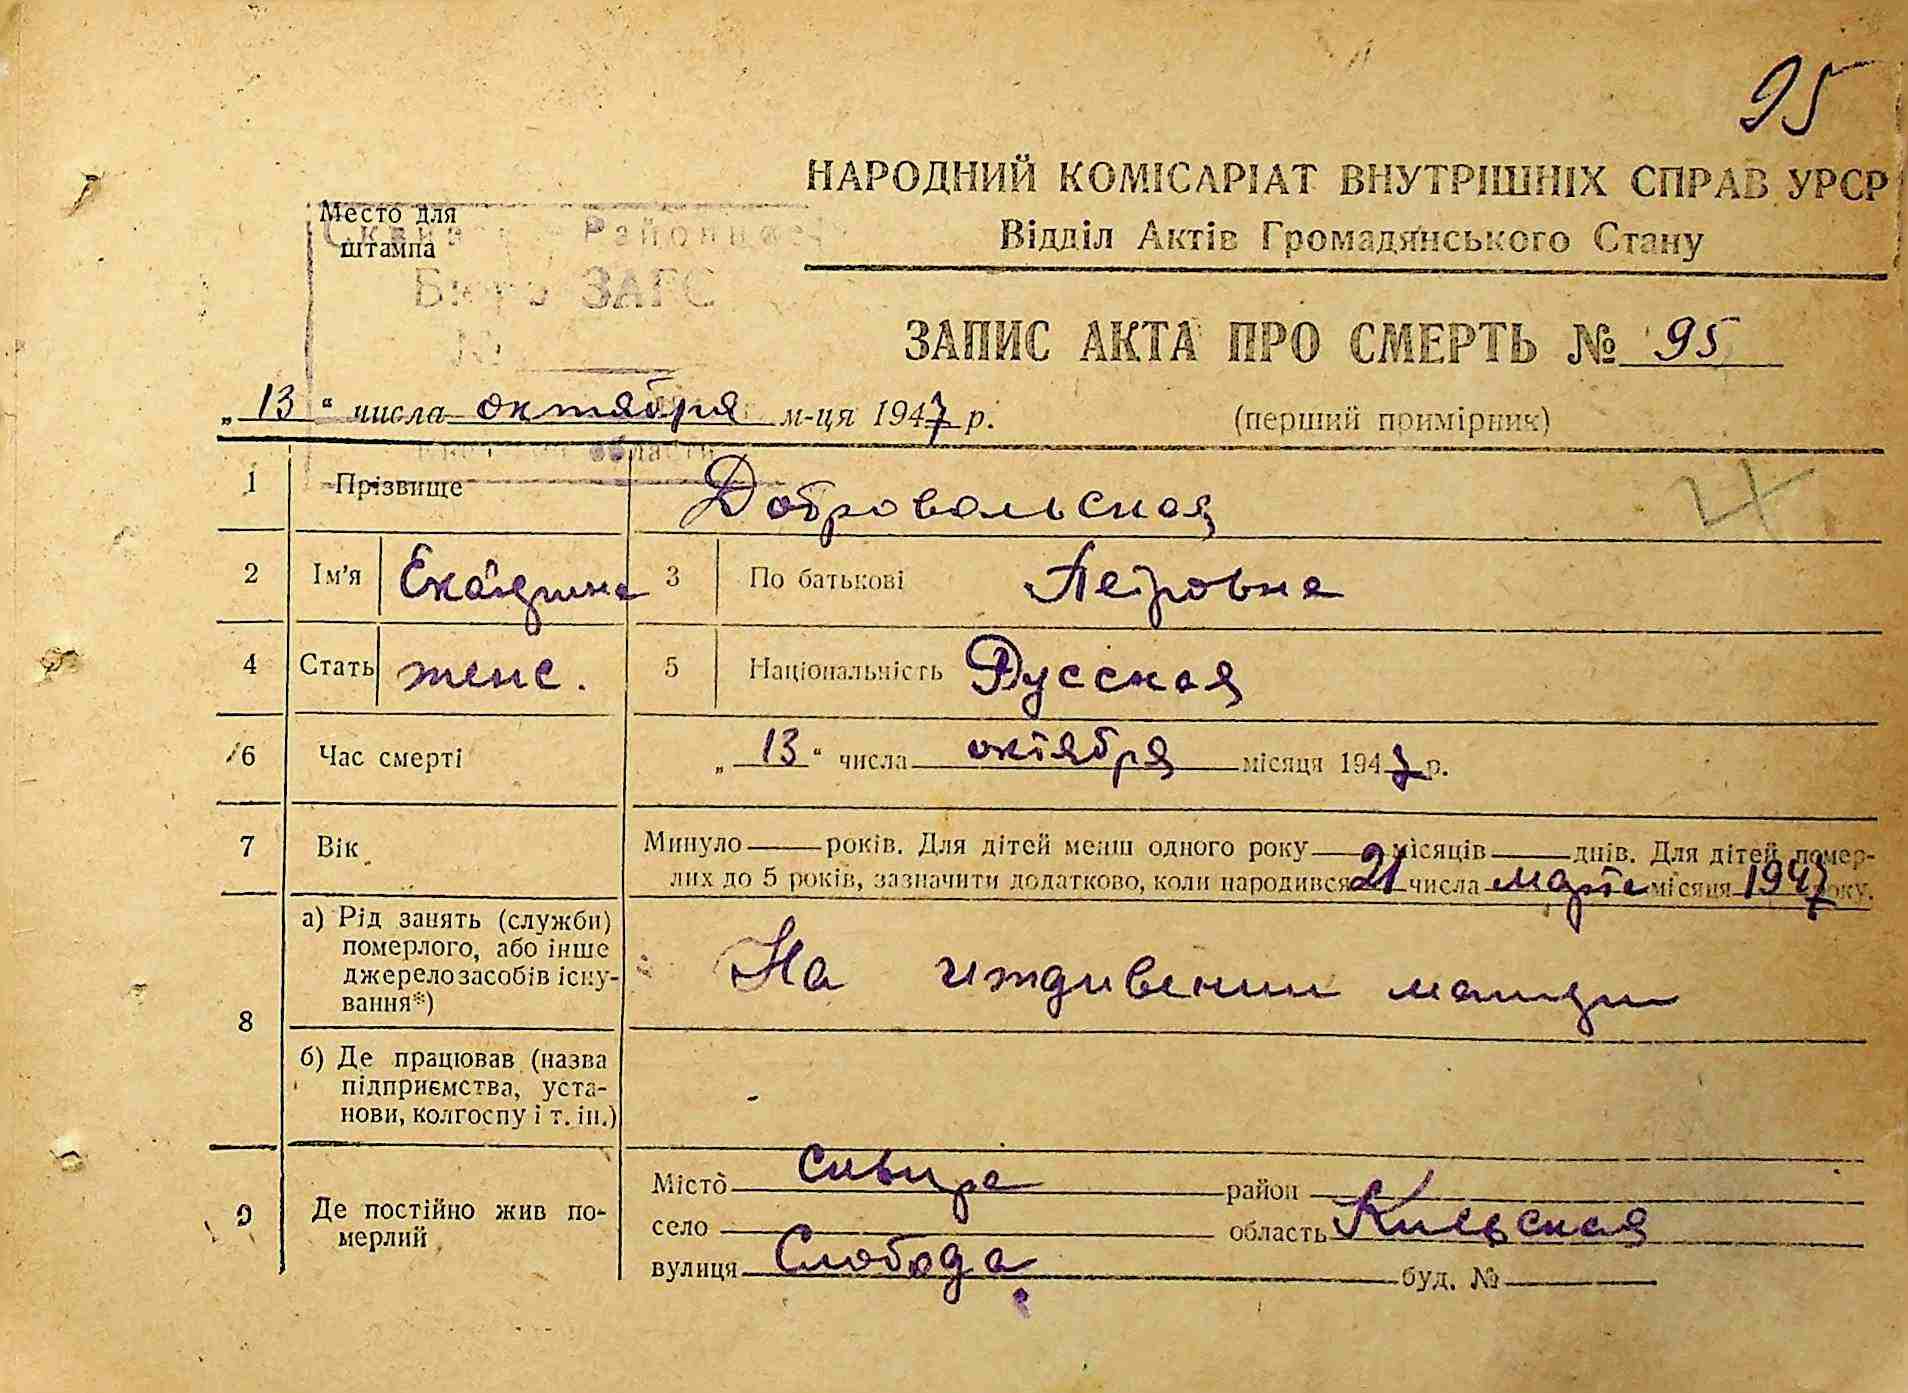 95
НАРОДНИЙ КОМІСАРІАТ ВНУТРІШНІХ СПРАВ УРСР
Відділ Актів Громадянського Стану
Место для
штампа
Бюро ЗАГС
№
ЗАПИС АКТА ПРО СМЕРТЬ № 95
„ 13 “ числа октября м-ця 1947 р.
(перший примірник)
области
1 Прізвище Добровольская
2 Ім'я Екатерина 3 По батькові Петровна
4 Стать женс. 5 Національність Русская
6 Час смерті „ 13 “ числа октября місяця 1947 р.
7 Вік Минуло років. Для дітей менш одного року місяців днів. Для дітей помер-
лих до 5 років, зазначити додатково, коли народився 21 числа марта місяця 1947 року.
8 а) Рід занять (служби)
померлого, або інше
джерело засобів існу-
вання*)
На иждивении матери
б) Де працював (назва
підприємства, уста-
нови, колгоспу і т. ін.)
-
9 Де постійно жив по-
мерлий
Місто Сквира район
село область Киевская
вулиця Слобода буд. №